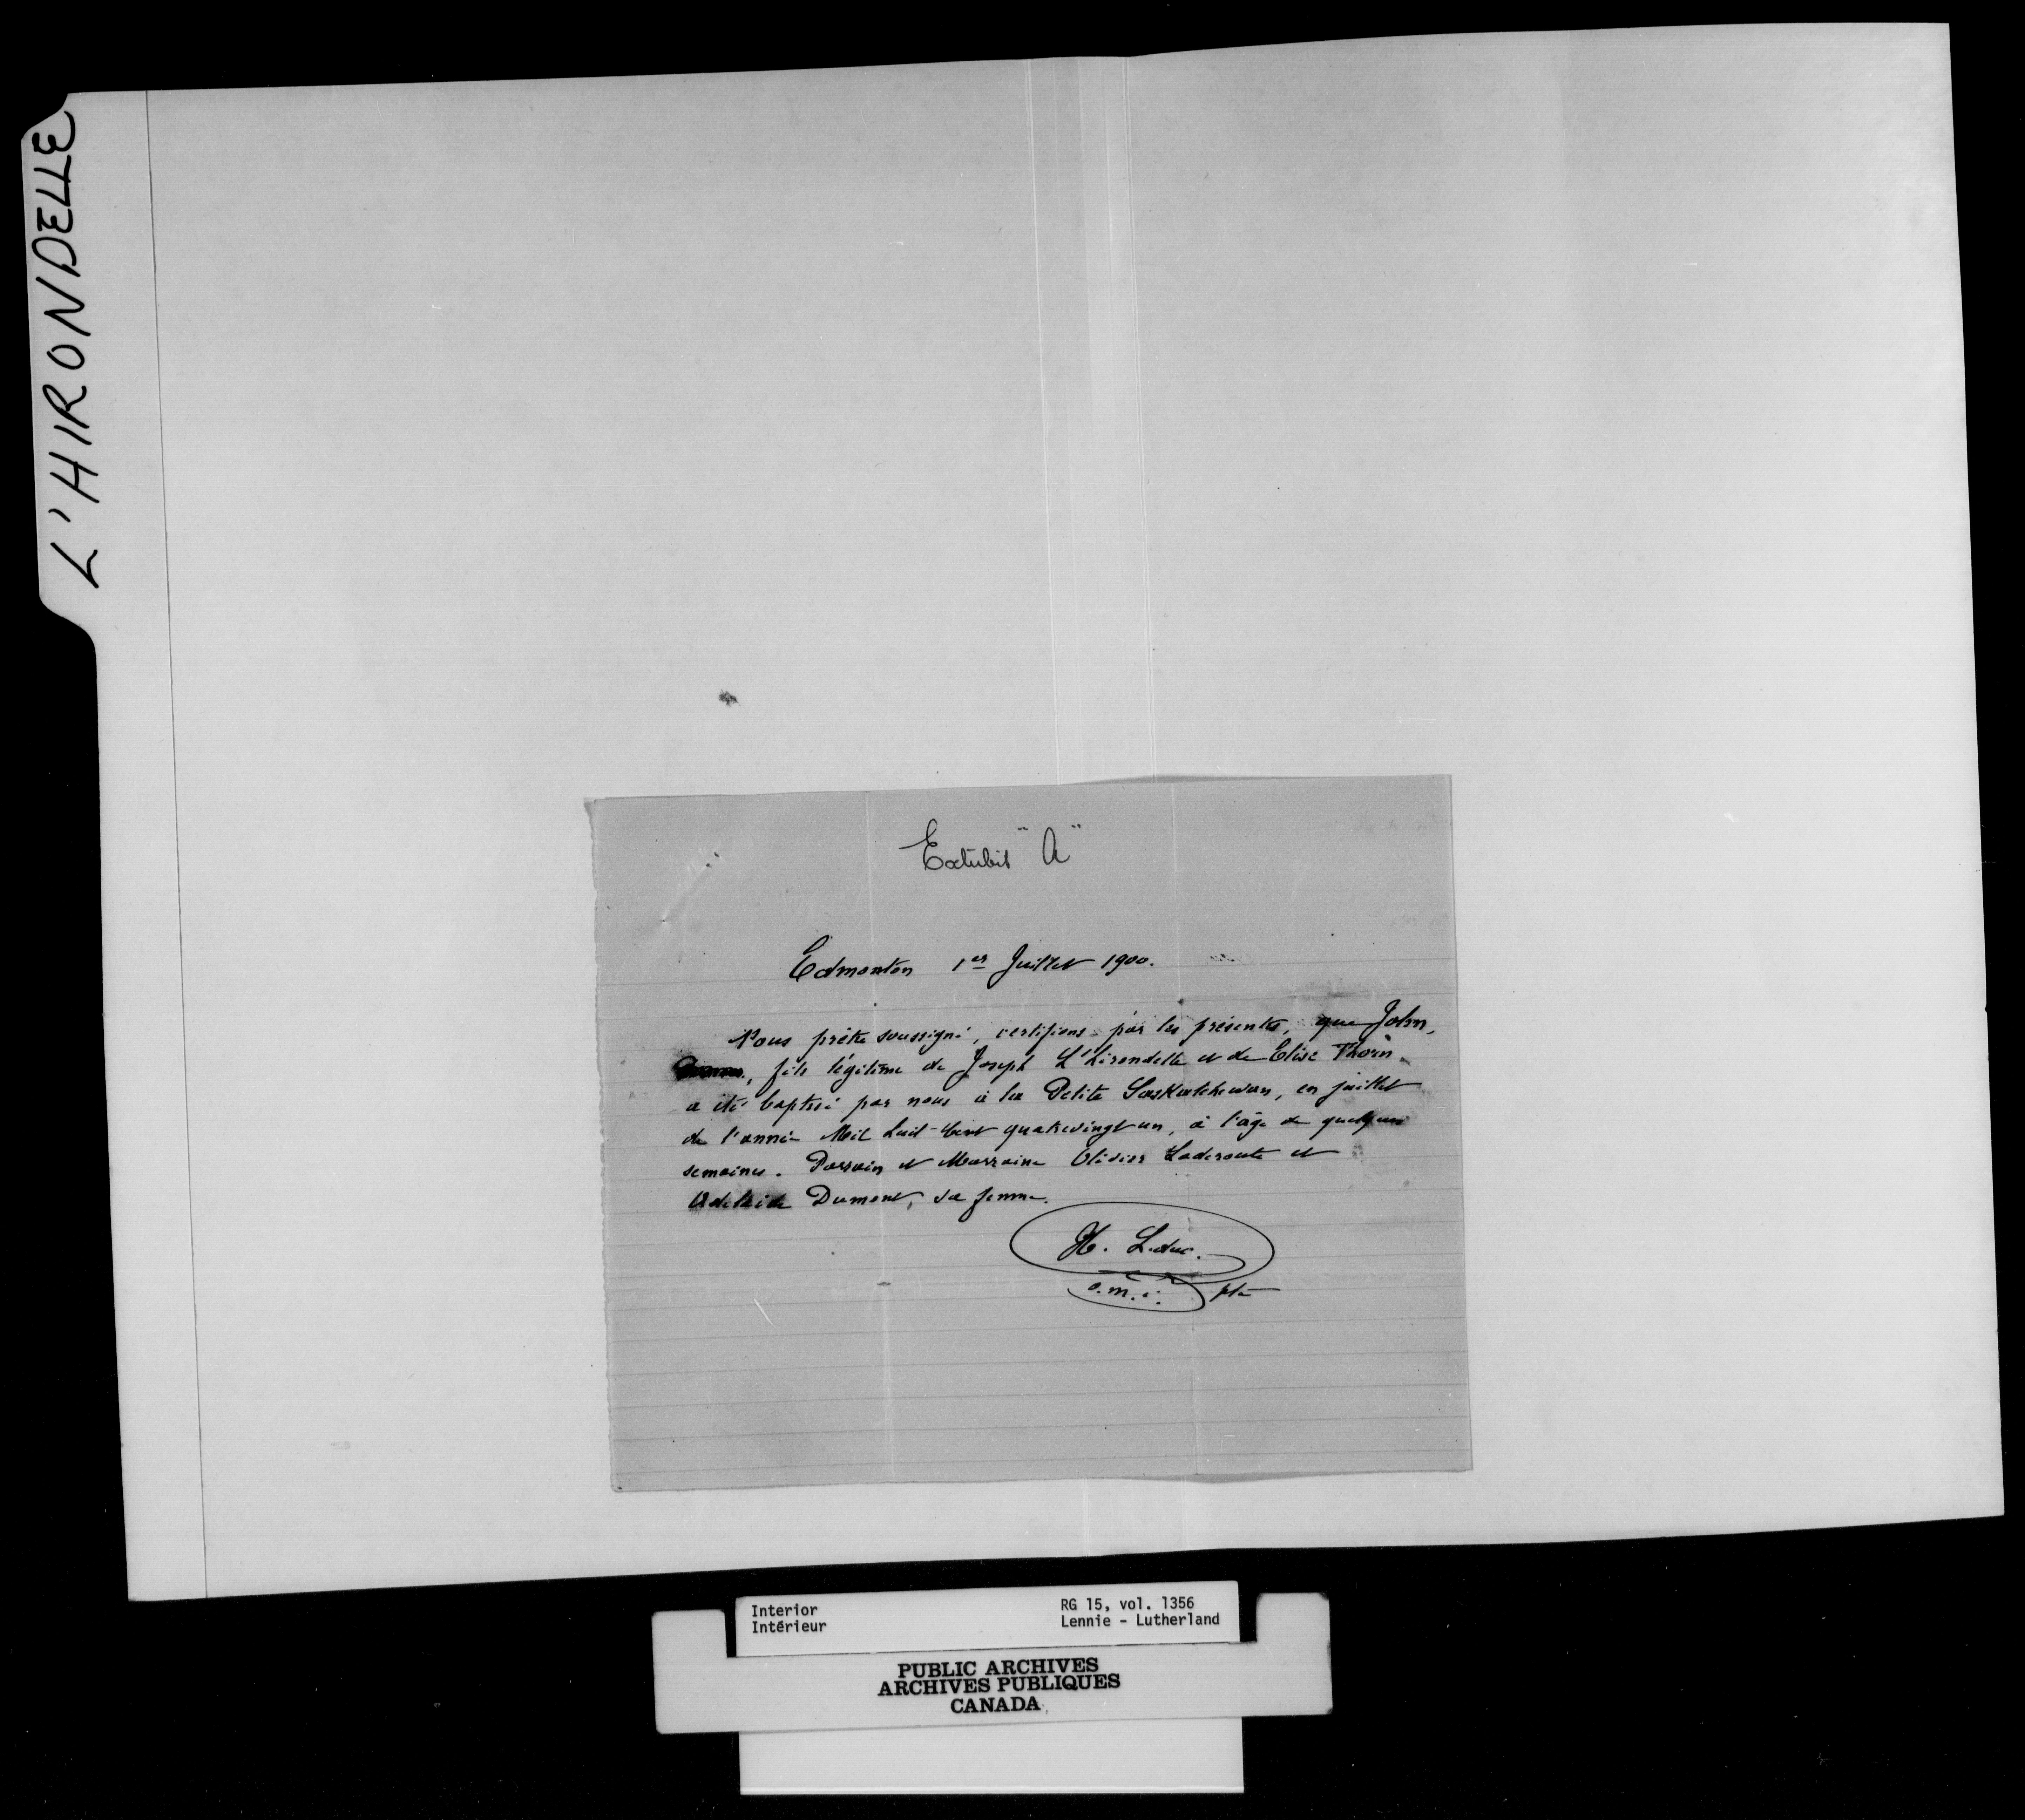 L'HIRONDELLE
Exhibit "A"
Edmonton 1er Juillet 1900.
Nous prêtre soussigné, certifions par les présentes, que John,
fils légitime de Joseph L'Hirondelle et de Elise Thorin
a été baptisé par nous à la Petite Saskatchewan, en juillet
de l'année Mil huit-cent quatrevingt un, à l'âge de quelques
semaines. Parrain et Marraine Olivier Laderoute et
Adelaide Dumont, sa femme.
H. Leduc.
o.m.i. ptre
Interior
Intérieur
RG 15, vol. 1356
Lennie - Lutherland
PUBLIC ARCHIVES
ARCHIVES PUBLIQUES
CANADA